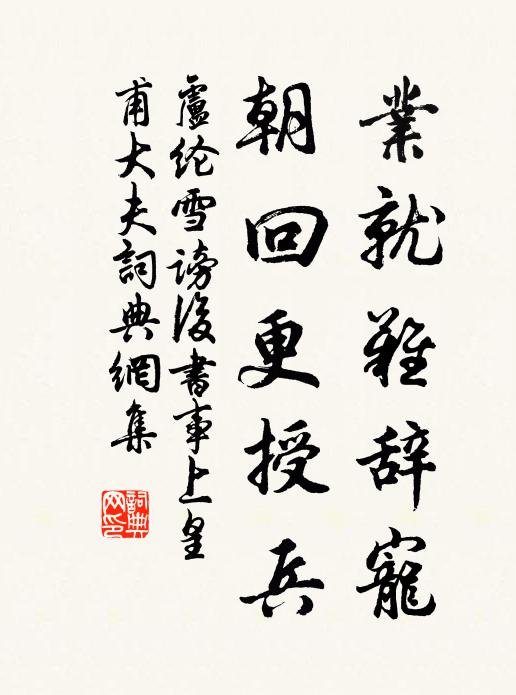 業就難辞寵
朝回更授兵
盧纶雪謗後書事上皇
甫大夫詞典網集
詞典网印